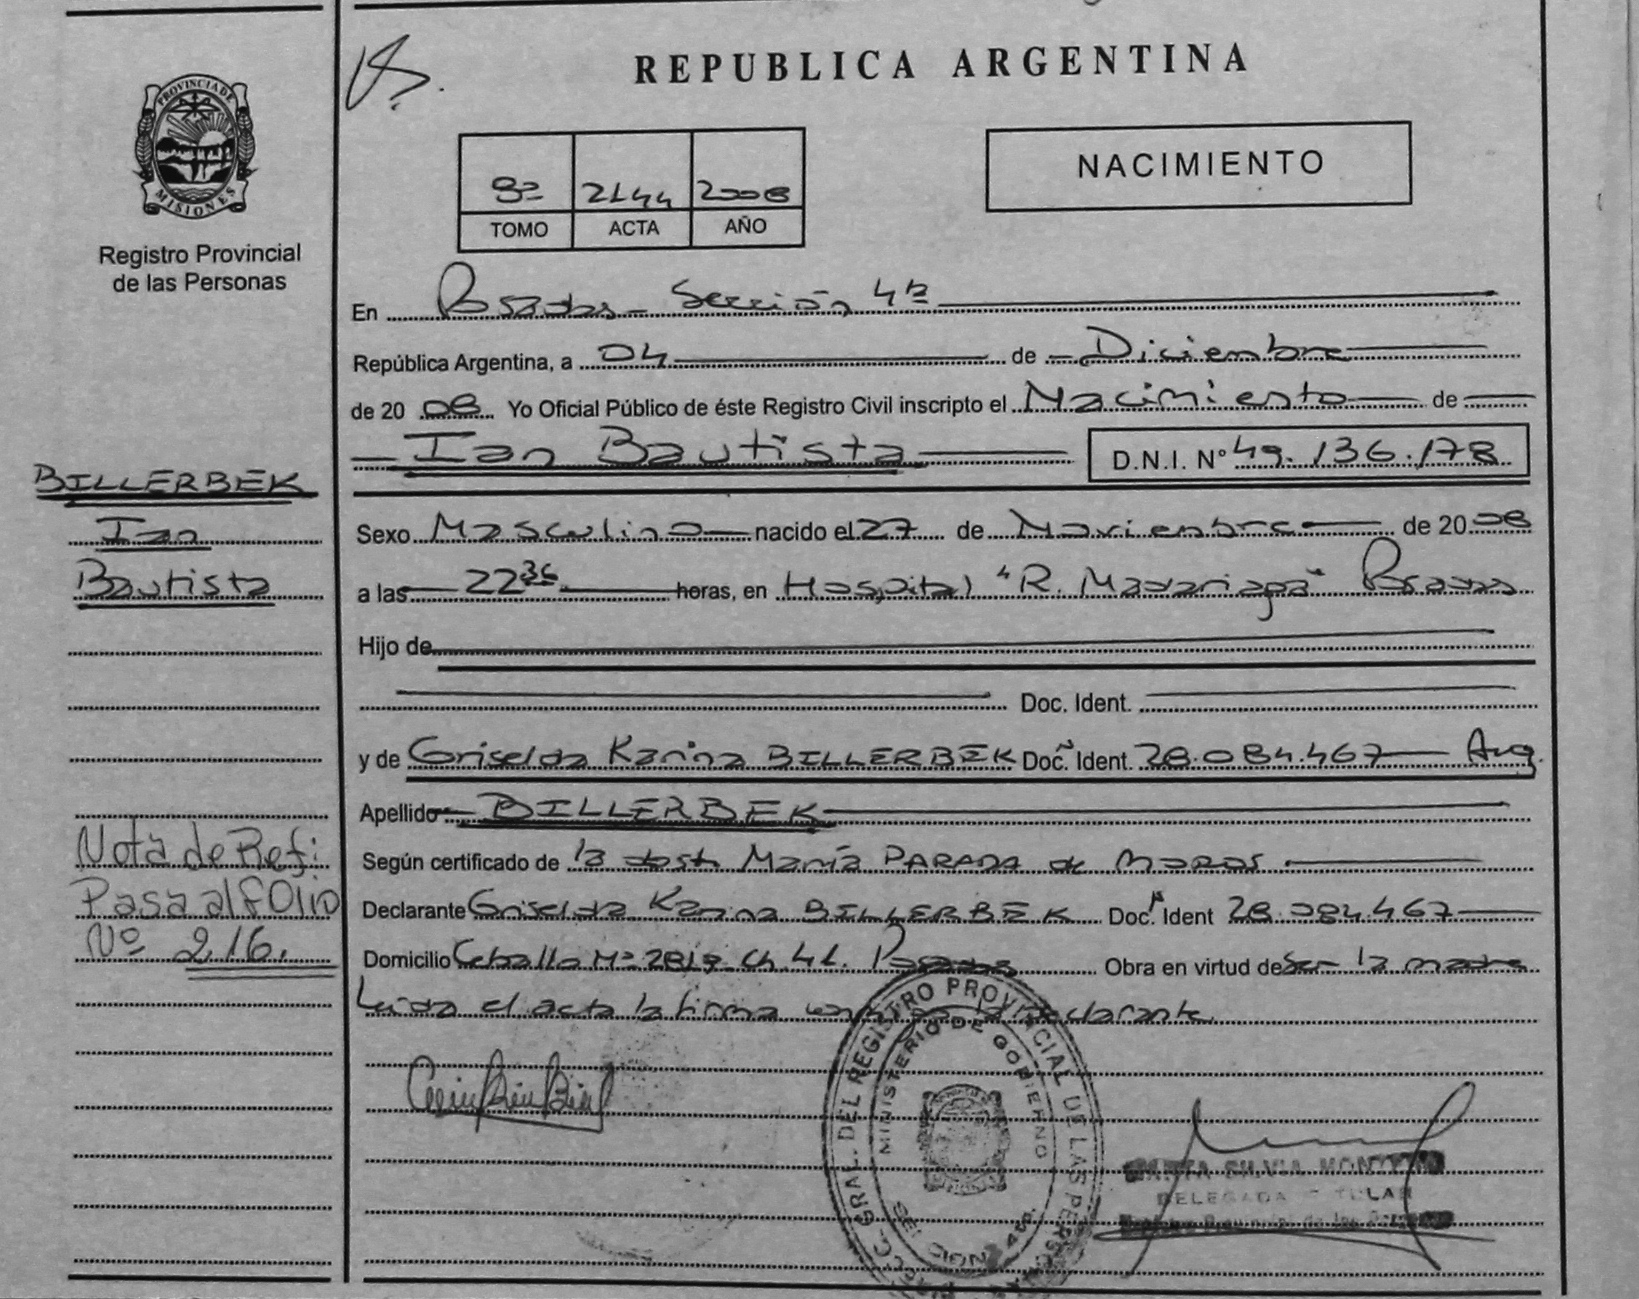 REPUBLICA ARGENTINA
PROVINCIA DE
MISIONES
Registro Provincial
de las Personas
NACIMIENTO
2144 2008
TOMO ACTA AÑO
En Posadas - Sección 4ª
República Argentina, a 04 de Diciembre
de 20 08 Yo Oficial Público de éste Registro Civil inscripto el Nacimiento de
Ian Bautista D.N.I. Nº 49.136.178
Sexo Masculino nacido el 27 de Noviembre de 20 08
a las 22 36 horas, en Hospital "R. Madariaga" Posadas
Hijo de
Doc. Ident.
y de Griselda Karina BILLERBEK Doc. Ident. 28.084.467 Arg.
Apellido BILLERBEK
Según certificado de la obst. María PARADA de
Declarante Griselda Karina BILLERBEK Doc. Ident 28.084.467
Domicilio Ceballo Nº Ch. Posadas Obra en virtud de ser la madre
Leída el acta la firma la declarante
BILLERBEK
Ian
Bautista
Nota de Ref:
Pasa al fOlio
Nº 216.
GRAL. DEL REGISTRO PROVINCIAL DE LAS PERSONAS
MINISTERIO DE GOBIERNO
SILVIA
DELEGADA TITULAR